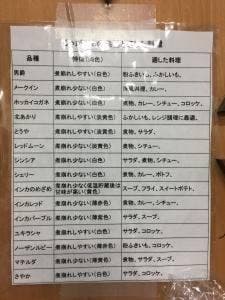 品種 特徴(色) 適した料理
男爵 煮崩れしやすい(白色) 粉ふきいも、ふかしいも。
メークイン 煮崩れ少ない(白色) 煮物、カレー。
ホッカイコガネ 煮崩れ少ない(淡黄色) 煮物、カレー、シチュー、コロッケ。
北あかり 煮崩れしやすい(黄色) ふかしいも、レンジ調理に最適。
とうや 煮崩れ少ない(淡黄色) 煮物、サラダ。
レッドムーン 煮崩れ少ない(淡黄色) カレー、シチュー。
シンシア 煮崩れ少ない(白色) サラダ、煮物、シチュー。
シェリー 煮崩れ少ない(白色) 煮物、カレー、ポトフ。
インカのめざめ 煮崩れ少なく低温貯蔵後は
甘味が高い(黄色) スープ、フライ、スイートポテト。
インカレッド 煮崩れ少ない(薄赤色) カレー、シチュー。
インカパープル 煮崩れ少ない(薄紫色) サラダ、スープ。
ユキラシャ 煮崩れ少ない(白色) サラダ、コロッケ。
ノーザンルビー 煮崩れしやすい(薄赤色) 粉ふきいも、コロッケ。
マチルダ 煮崩れ少ない(薄黄色) 煮物、サラダ、スープ。
さやか 煮崩れしやすい(白色) サラダ、コロッケ。